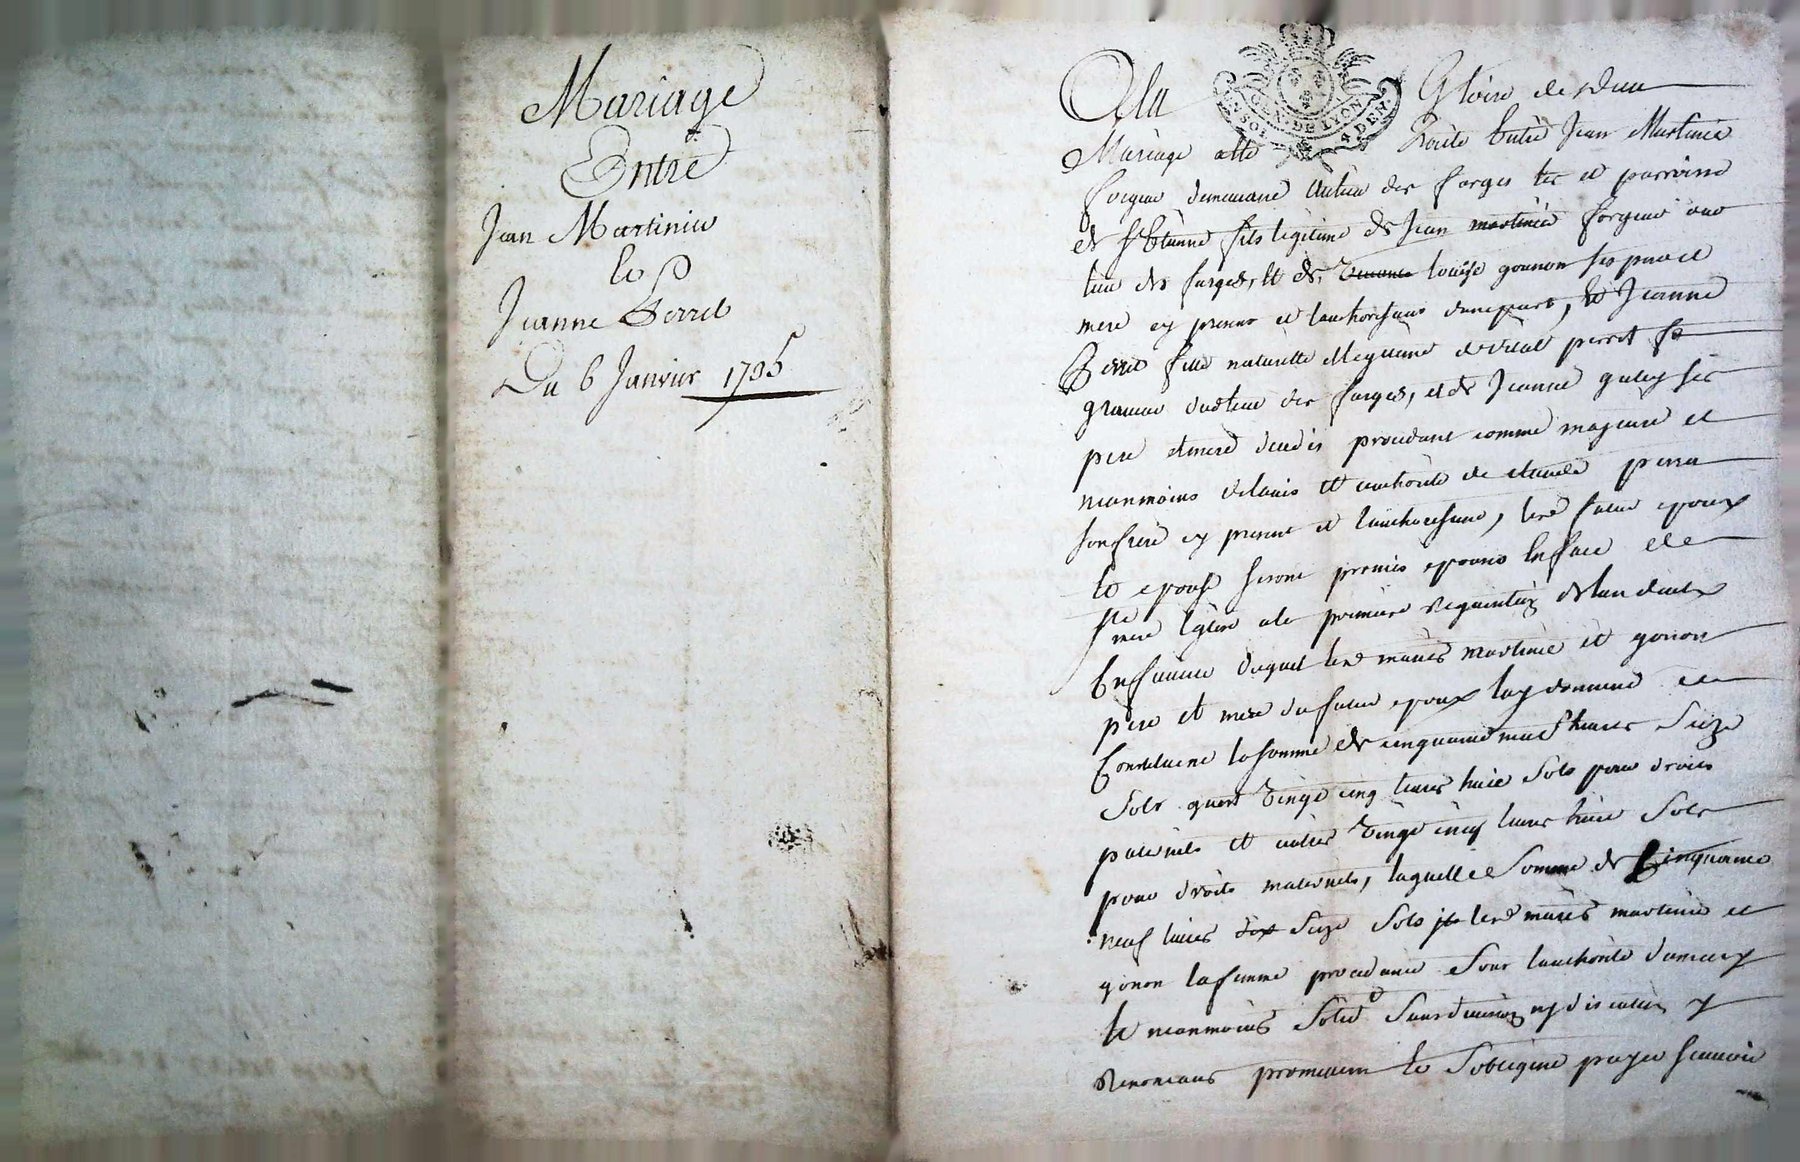 Mariage
Entre
Jean Martinier
Et
Jeanne Perret
Du 6 Janvier 1735
GEN. DE LYON
SOL 4 DEN
A la Gloire de dieu
Mariage a ete traité Entre Jean Martinie
forgeur demeurant au lieu des forges et parroisse
de St Etienne fils legitime de Jean martinie forgeur au
lieu des forges, et de louise gounon ses pere et
mere cy presant et lauthorisant dunepart, Et Jeanne
Perret fille naturelle et legitime de vital perret
dud lieu des forges, et de Jeanne ses
pere et mere procedant comme majeure et
neanmoins de lavis et authorité de claude perret
son frere cy present et lauthorisant, lesd futur epoux
Et epouse seront promis epouser En face de
ste mere Eglise a la premiere requisition de lun deux
En faveur duquel lesd mariés martinie et gonon
pere et mere du futur epoux luy donnent et
Constituent la somme de cinquante neuf livres seize
sols vingt cinq livres huit sols pour droits
paternels et autres vingt cinq livres huit sols
pour droits maternels, laquelle somme de Cinquante
neuf livres dix seize sols lesd mariés martinie et
gonon la femme procedante sous lauthorité
et neanmoins solid. sans division ny discution y
renoncant promettent et sobligent payer scavoir